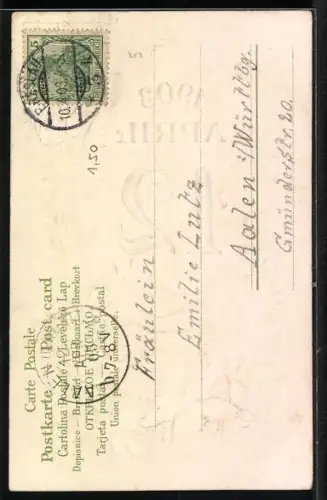 Carte Postale
Postkarte — Post card
Cartolina Postale — Levelező Lap
Dopisnice — Briefkaart — Brevkort
ОТКРЫТОЕ ПИСЬМО
Tarjeta postal — postal
Union postale universelle.
5
1,50
Fräulein
Emilie Lutz
Aalen i/Württbg.
Gmünderstr. 20.
1903
APRIL
7-8 N